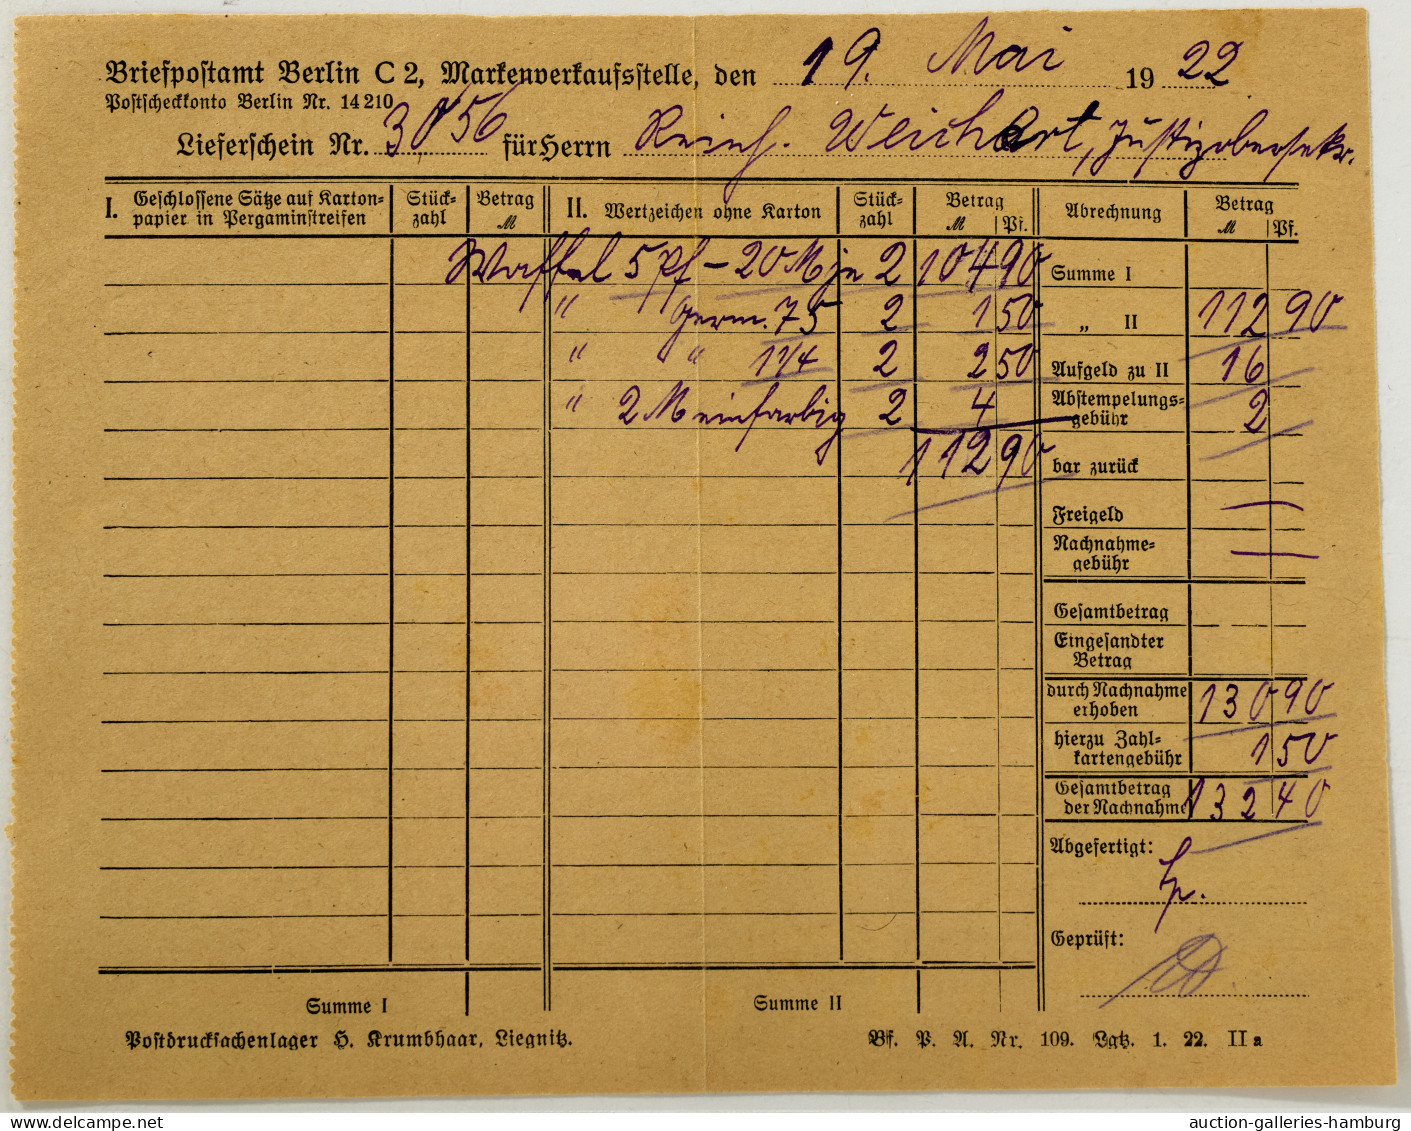 Briefpostamt Berlin C 2, Markenverkaufsstelle, den 19. Mai 1922
Postscheckkonto Berlin Nr. 14 210
Lieferschein Nr. 3056 für Herrn Reinh. Weichert, Justizobersekr.
I. Geschlossene Sätze auf Karton- Stück- Betrag II. Wertzeichen ohne Karton Stück- Betrag Abrechnung Betrag
papier in Pergaminstreifen zahl M zahl M Pf. M Pf.
Waffel 5 Pf – 20 M je 2 104 90 Summe I
" Germ. 75 2 1 50 " II 112 90
" " 1 1/4 2 2 50 Aufgeld zu II 16
" 2 M einfarbig 2 4 Abstempelungs-
gebühr 2
112 90 bar zurück
Freigeld —
Nachnahme-
gebühr —
Gesamtbetrag
Eingesandter
Betrag
durch Nachnahme
erhoben 130 90
hierzu Zahl-
kartengebühr 1 50
Gesamtbetrag
der Nachnahme 132 40
Abgefertigt:
Geprüft:
Summe I Summe II
Postdrucksachenlager H. Krumbhaar, Liegnitz. Bf. P. A. Nr. 109. Lgtz. 1. 22. II a
auction-galleries-hamburg
www.delcampe.net